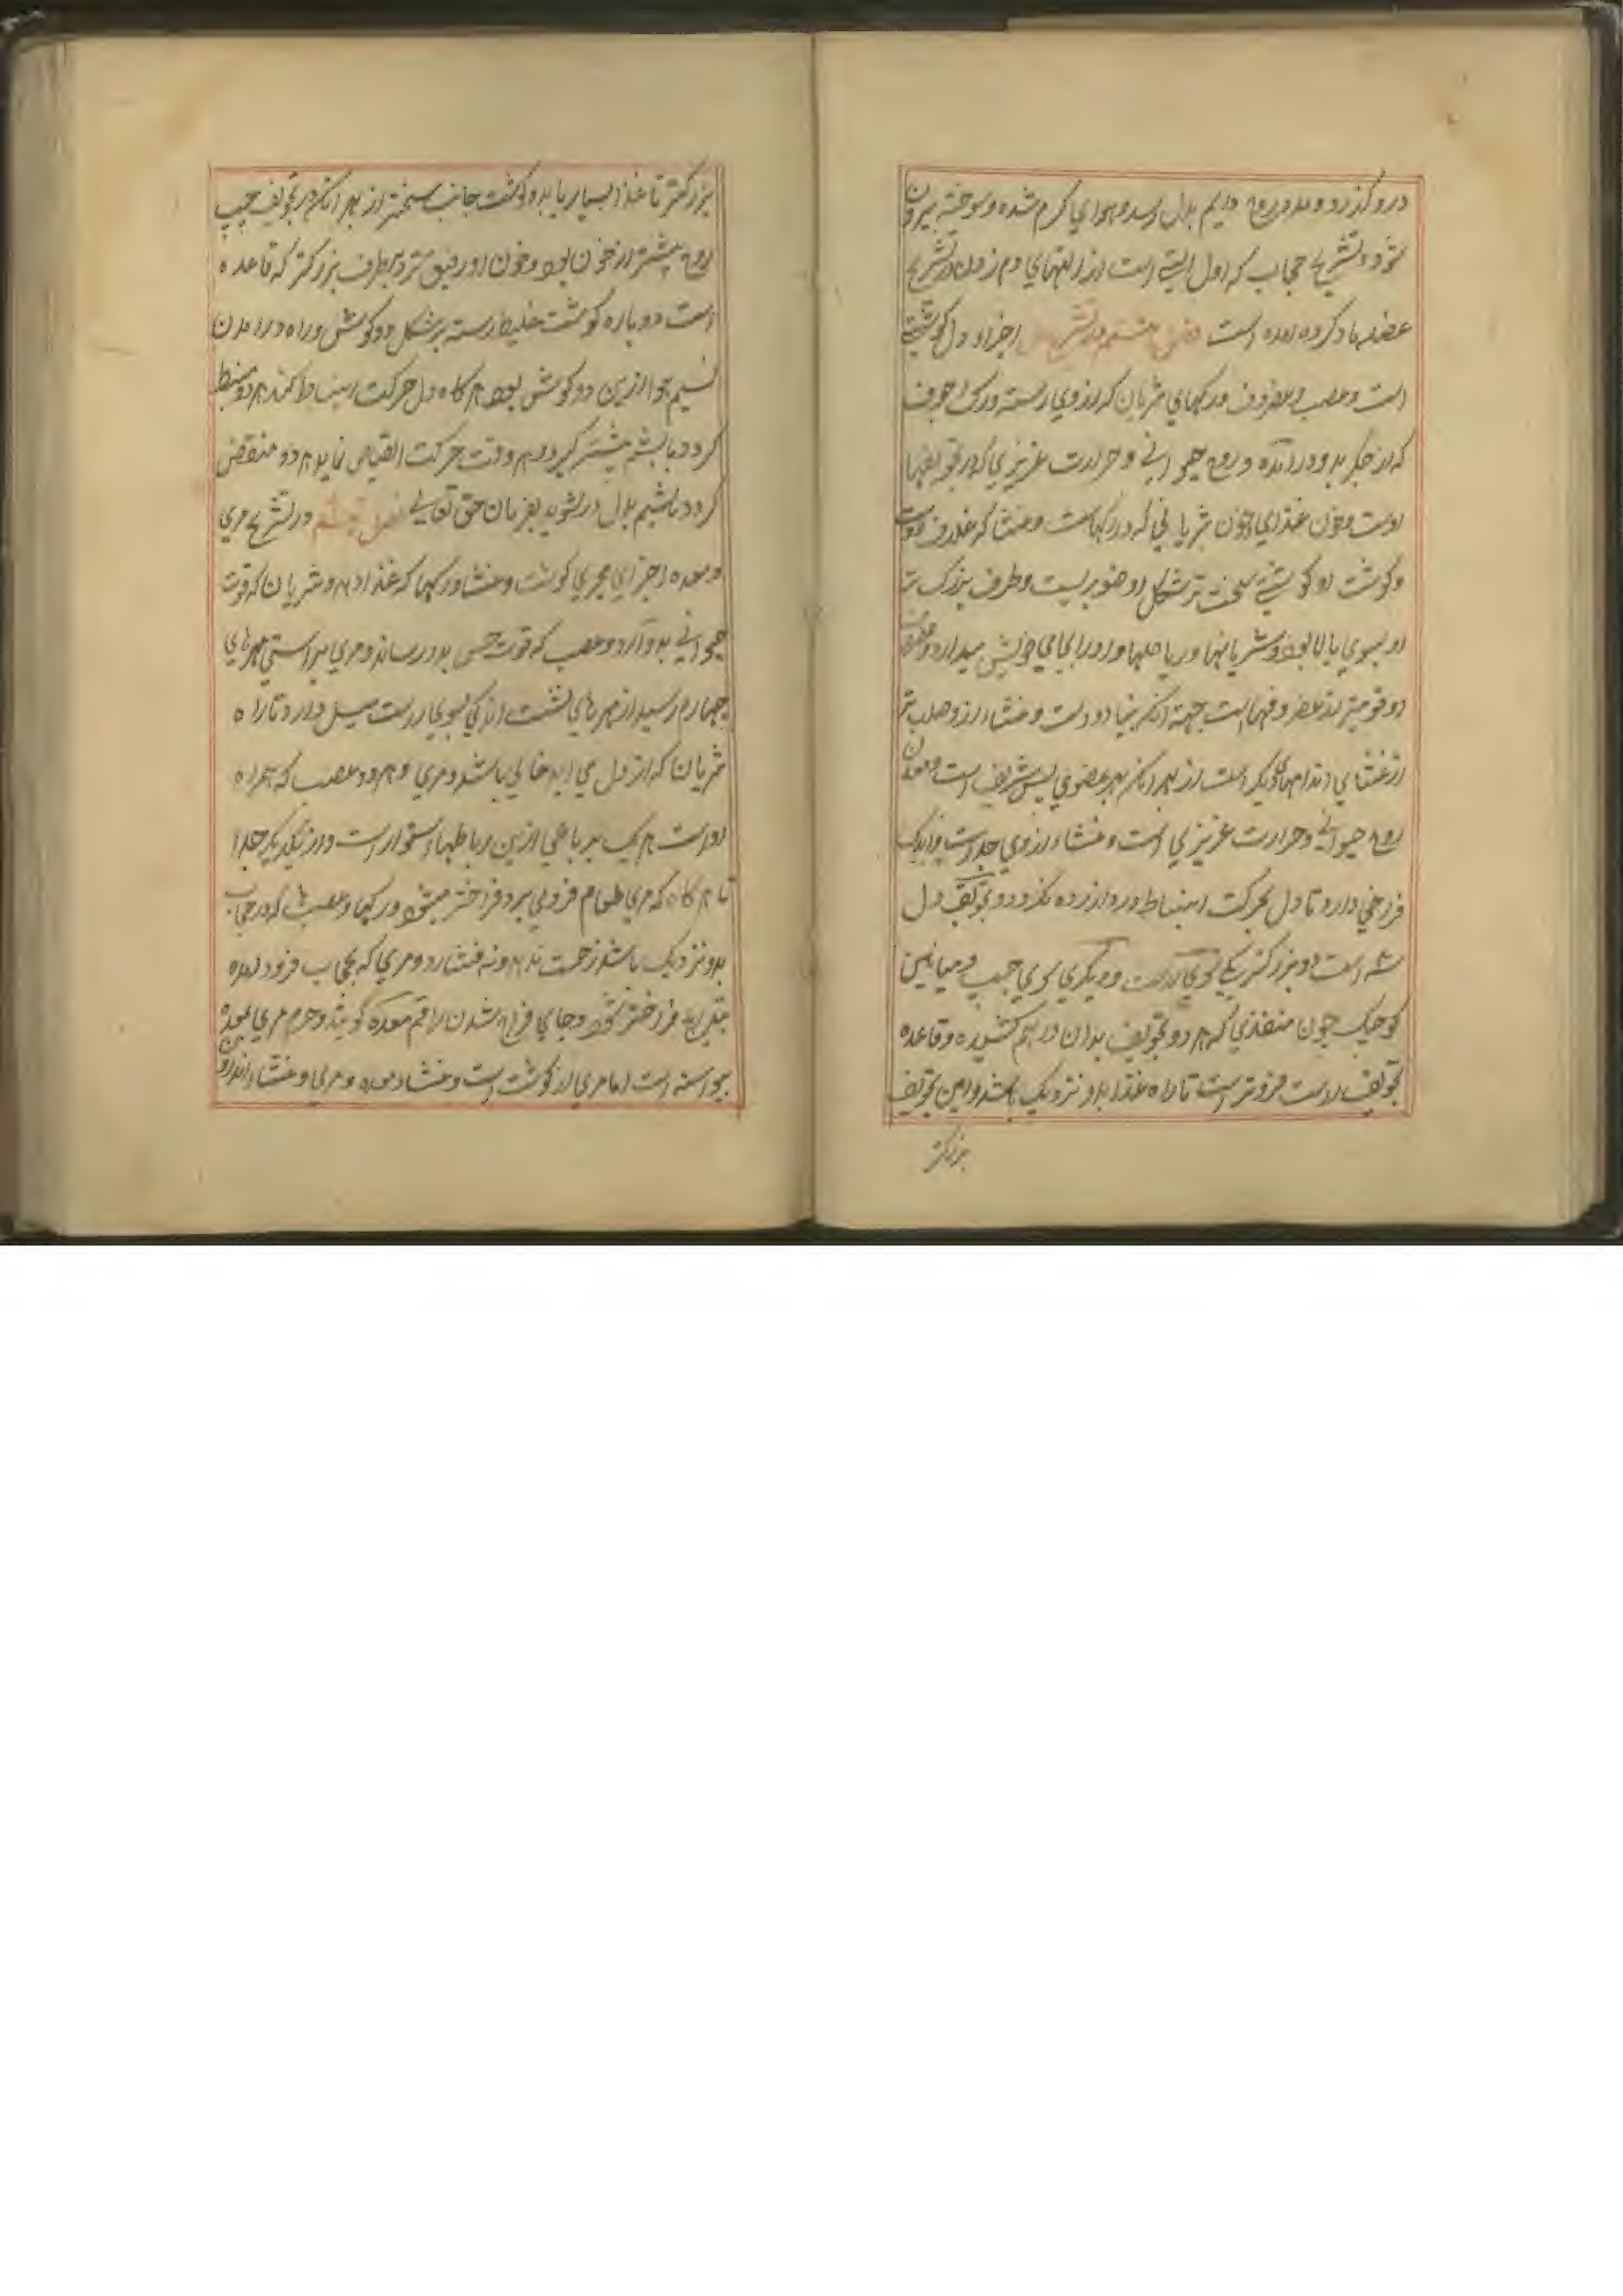 درو گذرد و بدو روح دایم بدل رسد و هوای کرم شده و سوخته بیرون
شود و تشریح حجاب که اول التی است از التهای دم زدن در تشریح
عضلها یاد کرده امده است فصل هشتم در تشریح دل اجزاء دل گوشت
است و عصب و غضروف و رکهای شریان که از وی رسته و رک اجوف
که از جگر بدو در آمده و روح حیوانی و حرارت غریزی که در تجویفها
اوست و خون غذای و خون شریانی که در رکهاست و غشا که غلاف اوست
و گوشت او گوشتی سخت تر شکل او صنوبریست و طرف بزرگ تر
او بسوی بالا بود و شریانها و رباطها و او را بجای خویش میدارد و غضروف
او قویترین غضروفهاست جهة آنکه بنیاد اوست و غشاء او صلب تر
از غشای اندامهای دیگر است از بهر آنکه بهر عضوی پس شریف است و معدن
روح حیوانی و حرارت غریزی است و غشاء از وی جداست و اندک
فرخی دارد تا دل بحرکت انبساط در وازرده نگردد و تجویف دل
سه است دو بزرگتر یکی سوی راست و دیگری سوی چپ و میانین
کوچک چون منفذی که هر دو تجویف بدان در هم گشیده و قاعده
تجویف راست فروتر است تا راه غذا بدو نزدیک باشد و این تجویف
بزرگتر
بزرگتر تا غذا بسیار یابد و گوشت جانب سختتر از بهر انکه در تجویف چپ
روح بیشتر از خون بود و خون او رقیق تر و بر طرف بزرگتر که قاعده
است دو پاره گوشت غلیظ رسته بر شکل دو گوش و راه در امدن
نسیم هوا ازین دو گوش بود هر گاه دل حرکت انبساط کند هر دو منبسط
کردد تا نسیم بیشتر گیرد و هر وقت حرکت انقباض نماید هر دو منقبض
کردد تا نسیم بدل در شوید بفرمان حق تعالی فصل نهم در تشریح مری
و معده اجزای مجری گوشت و غشا و رکها که غذا دهد و شریان که قوت
حیوانی بدو آرد و عصب که قوت حس بدو رساند و مری براستی مهرهای
چهارم رسید از مهرهای پشت اندکی بسوی راست میل دارد تا راه
شریان که از دل می اید خالی باشد و مری و هر دو عصب که همراه
اوست هر یک برباطی ازین رباطها استوار است و از یکدیگر جدا
تا هر گاه که مری طعام فرو می برد فراختر میشود و رکها و عصبها که در حجاب
بدو نزدیک باشد زحمت ندهد و نه فشارد و مری که بحجاب فرود امده
بتدریج فراختر شود و جای فراخ شدن را فم معده گویند و جرم مری بمعده
پیوسته است اما مری از گوشت است و غشاء معده و مری و غشاء اندرون